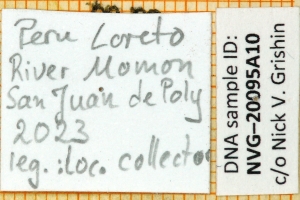 Peru Loreto
River Momon
San Juan de Poly
2023
leg.:loc. collector
DNA sample ID:
NVG-20095A10
c/o Nick V. Grishin